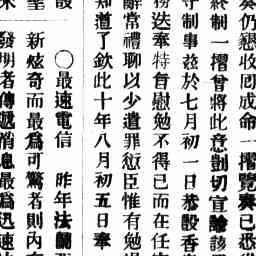 奏仍懇收回成命一摺覽奏已悉從
終制一摺曾將此意剴切宣諭該
守制事茲於七月初一日恭設香
務迭奉特旨慰勉不得已而在任
辭當禮聊以少遺罪愆臣惟有勉
知道了欽此十年八月初五日奉
○最速電信 昨年法蘭
新炫奇而最爲可驚者則內有
發明者傳遞消息最爲迅速